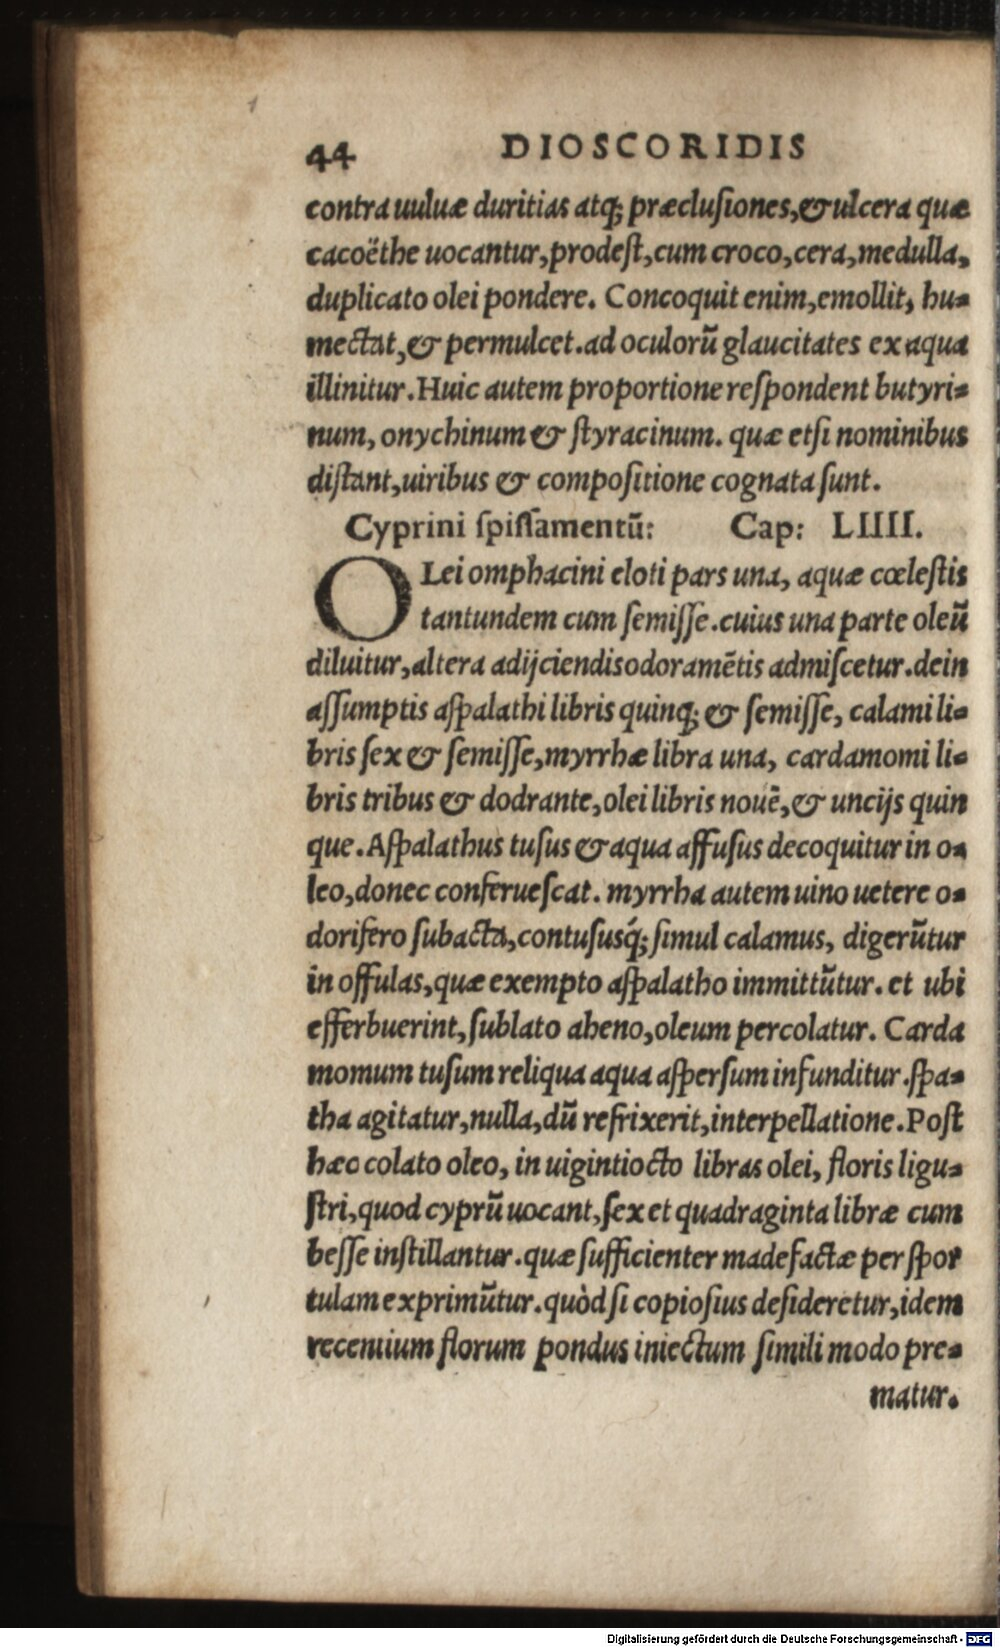 44 DIOSCORIDIS
contra uuluæ duritias atq; præclusiones,& ulcera quæ
cacoëthe uocantur,prodest,cum croco,cera,medulla,
duplicato olei pondere. Concoquit enim,emollit, hu-
mectat,& permulcet.ad oculorũ glaucitates ex aqua
illinitur.Huic autem proportione respondent butyri-
num, onychinum & styracinum. quæ etsi nominibus
distant,uiribus & compositione cognata sunt.
Cyprini spissamentũ: Cap: LIIII.
OLei omphacini eloti pars una, aquæ cœlestis
tantundem cum semisse.cuius una parte oleũ
diluitur,altera adijciendis odoramẽtis admiscetur.dein
assumptis aspalathi libris quinq; & semisse, calami li-
bris sex & semisse,myrrhæ libra una, cardamomi li-
bris tribus & dodrante,olei libris nouẽ,& uncijs quin
que.Aspalathus tusus & aqua affusus decoquitur in o-
leo,donec conferuescat. myrrha autem uino uetere o-
dorifero subacta,contususq́; simul calamus, digerũtur
in offulas,quæ exempto aspalatho immittũtur. et ubi
efferbuerint,sublato aheno,oleum percolatur. Carda
momum tusum reliqua aqua aspersum infunditur.spa-
tha agitatur,nulla,dũ refrixerit,interpellatione.Post
hæc colato oleo, in uigintiocto libras olei, floris ligu-
stri,quod cyprũ uocant,sex et quadraginta libræ cum
besse instillantur.quæ sufficienter madefactæ per spor
tulam exprimũtur.quòd si copiosius desideretur,idem
recentium florum pondus iniectum simili modo pre-
matur.
Digitalisierung gefördert durch die Deutsche Forschungsgemeinschaft - DFG